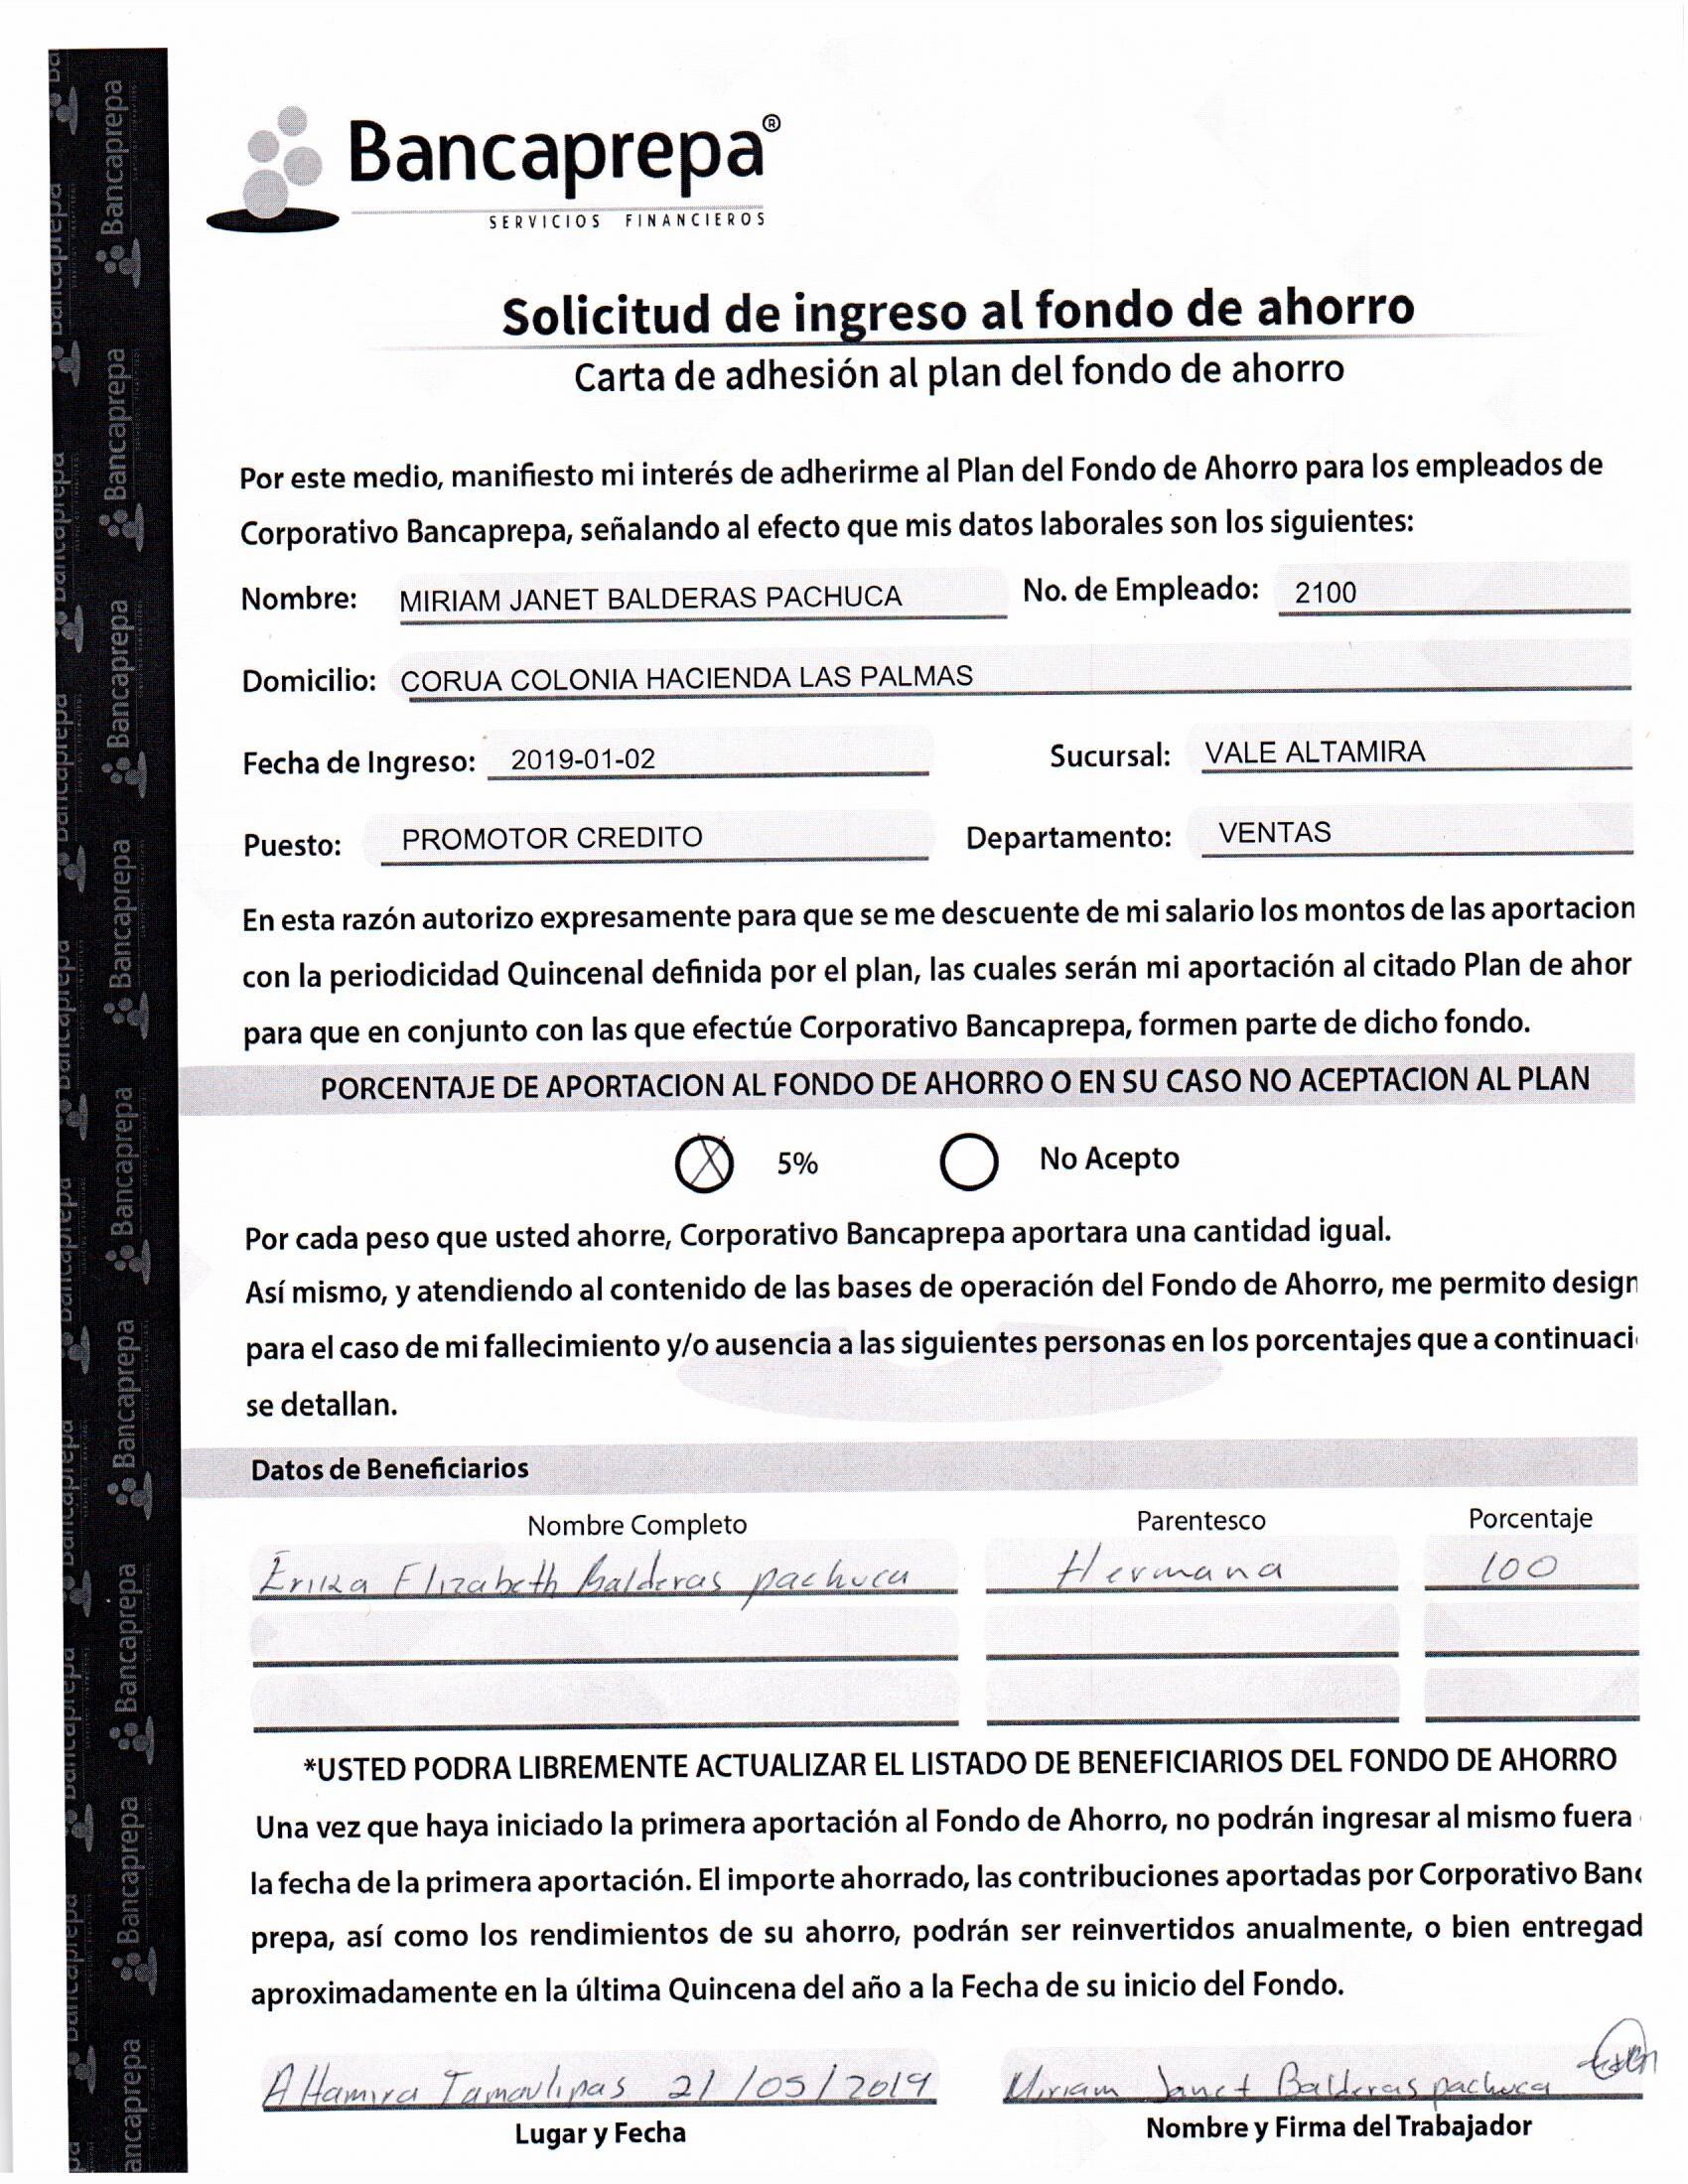 Bancaprepa®
SERVICIOS FINANCIEROS
Solicitud de ingreso al fondo de ahorro
Carta de adhesión al plan del fondo de ahorro
Por este medio, manifiesto mi interés de adherirme al Plan del Fondo de Ahorro para los empleados de
Corporativo Bancaprepa, señalando al efecto que mis datos laborales son los siguientes:
Nombre: MIRIAM JANET BALDERAS PACHUCA No. de Empleado: 2100
Domicilio: CORUA COLONIA HACIENDA LAS PALMAS
Fecha de Ingreso: 2019-01-02 Sucursal: VALE ALTAMIRA
Puesto: PROMOTOR CREDITO Departamento: VENTAS
En esta razón autorizo expresamente para que se me descuente de mi salario los montos de las aportacion
con la periodicidad Quincenal definida por el plan, las cuales serán mi aportación al citado Plan de ahor
para que en conjunto con las que efectúe Corporativo Bancaprepa, formen parte de dicho fondo.
PORCENTAJE DE APORTACION AL FONDO DE AHORRO O EN SU CASO NO ACEPTACION AL PLAN
X 5% No Acepto
Por cada peso que usted ahorre, Corporativo Bancaprepa aportara una cantidad igual.
Así mismo, y atendiendo al contenido de las bases de operación del Fondo de Ahorro, me permito design
para el caso de mi fallecimiento y/o ausencia a las siguientes personas en los porcentajes que a continuaci
se detallan.
Datos de Beneficiarios
Nombre Completo Parentesco Porcentaje
Erika Elizabeth Balderas pachuca Hermana 100
*USTED PODRA LIBREMENTE ACTUALIZAR EL LISTADO DE BENEFICIARIOS DEL FONDO DE AHORRO
Una vez que haya iniciado la primera aportación al Fondo de Ahorro, no podrán ingresar al mismo fuera
la fecha de la primera aportación. El importe ahorrado, las contribuciones aportadas por Corporativo Banc
prepa, así como los rendimientos de su ahorro, podrán ser reinvertidos anualmente, o bien entregad
aproximadamente en la última Quincena del año a la Fecha de su inicio del Fondo.
Altamira Tamaulipas 21/05/2019 Miriam Janet Balderas pachuca
Lugar y Fecha Nombre y Firma del Trabajador